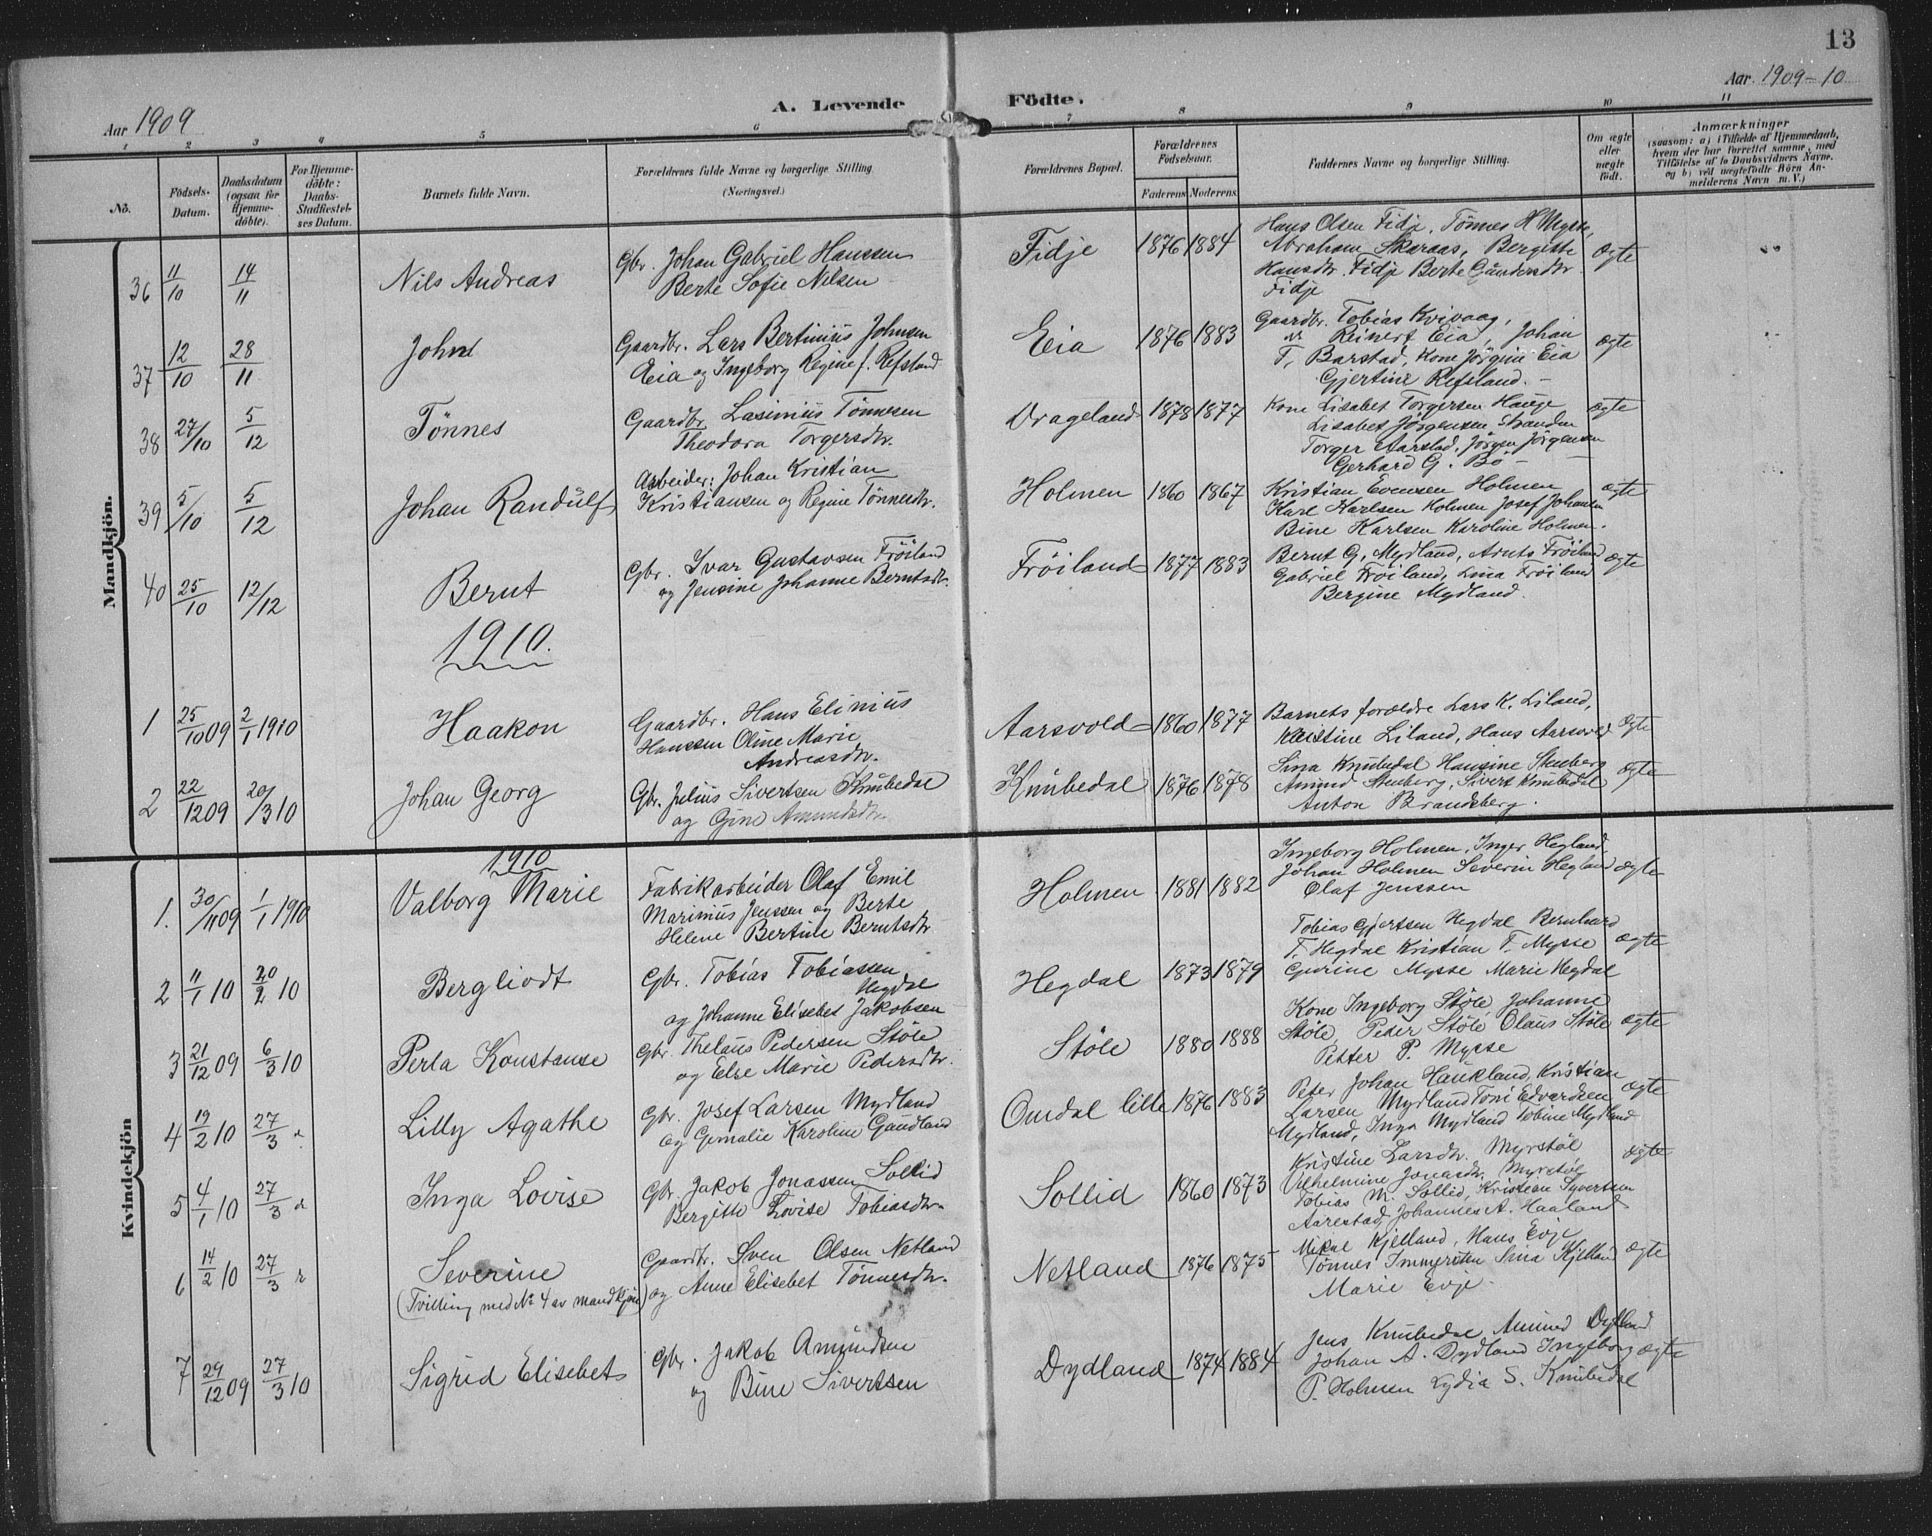 13
Aar 1909
A. Levende Födte.
Aar 1909-10
1 2 3 4 5 6 7 8 9 10 11
No.
Födsels-Datum.
Daabsdatum (ogsaa for Hjemmedöbte).
For Hjemmedöbte: Daabs-Stadfæstelses Datum.
Barnets fulde Navn.
Forældrenes fulde Navne og borgerlige Stilling (Næringsvei.)
Forældrenes Bopæl.
Forældrenes Födselsaar.
Faderens Moderens
Faddernes Navne og borgerlige Stilling.
Om ægte eller uægte födt.
Anmærkninger
(saasom: a) i Tilfælde af Hjemmedaab, hvem der har forrettet samme, med Tilföielse af to Daabsvidners Navne, og b) ved uægtefödte Börn Anmelderens Navn m. V.)
Mandkjön.
36 11/10 14/11 Nils Andreas
Gbr. Johan Gabriel Hanssen
Berte Sofie Nilsen
Fidje 1876 1884
Hans Olsen Fidje, Tönnes H Mysse,
Abraham Skaraas, Bergitte
Hansdtr. Fidje Berte Gundersdtr
Fidje
ægte
37 12/10 28/11 John
Gaardbr. Lars Bertinius Johnsen
Eia og Ingeborg Regine f. Refsland
Eia 1876 1883
Gaardbr. Tobias Kvivaag,
Reinert Eia, Johan
T. Barstad, Kone Jörgine Eia
Gjertine Refsland.
ægte
38 27/10 5/12 Tönnes
Gaardbr. Lasinius Tönnesen
Theodora Torgersdtr.
Drageland 1878 1877
Kone Lisabet Torgersen Hauge
Lisabet Jörgensen Stranden
Torger Aarstad, Jörgen Jörgensen
Gerhard G. Bö
ægte
39 5/10 5/12 Johan Randulf
Arbeider: Johan Kristian
Kristiansen og Regine Tönnesdtr.
Holmen 1860 1867
Kristian Evensen Holmen
Karl Karlsen Holmen Josef Johansen
Bine Karlsen Karoline Holmen.
ægte
40 25/10 12/12 Bernt
Gbr. Ivar Gustavsen Fröiland
og Jensine Johanne Berntsdtr.
Fröiland 1877 1883
Bernt G. Mydland, Arnts Fröiland
Gabriel Fröiland, Lina Fröiland
Bergine Mydland.
ægte
1910.
1 25/10 09 2/1 1910 Haakon
Gaardbr. Hans Elinius
Hanssen Oline Marie
Andreasdtr.
Aarsvold 1860 1877
Barnets forældre Lars K. Liland,
Kristine Liland, Hans Aarsvold
ægte
2 22/12 09 20/3 10 Johan Georg
Gbr. Julius Sivertsen Knubedal
og Gine Amundsdtr.
Knubedal 1876 1878
Sina Knubedal Hansine Stenberg
Amund Stenberg, Sivert Knubedal
Anton Brandsberg.
ægte
Kvindekjön
1910
1. 30/11 09 1/1 1910 Valborg Marie
Fabrikarbeider Olaf Emil
Marinius Jenssen og Berte
Helene Bertine Berntsdtr
Holmen 1881 1882
Ingeborg Holmen, Inger Hegland
Johan Holmen Severin Hegland
Olaf Jenssen
ægte
2 11/1 10 20/2 10 Bergliodt
Gbr. Tobias Tobiassen
Hegdal
og Johanne Elisebet Jakobsen
Hegdal 1873 1879
Tobias Gjertsen Hegdal Bernhard
T. Hegdal Kristian T. Mysse
Gurine Mysse Marie Hegdal
ægte
3 21/12 09 6/3 10 Perla Konstanse
Gbr. Thelaus Pedersen Stöle
og Else Marie Pedersdtr.
Stöle 1880 1888
Kone Ingeborg Stöle, Johanne
Stöle, Peder Stöle Olaus Stöle
Petter P. Mysse
ægte
4 19/2 10 27/3 Lilly Agathe
Gbr. Josef Larsen Mydland
og Gemalie Karoline Gaudland
Omdal lille 1876 1883
Peter Johan Haukland, Kristian
Larsen Mydland Toni Edvardsen
Mydland, Inga Mydland Tobine Mydland
ægte
5 4/1 10 27/3 Inga Lovise
Gbr. Jakob Jonassen Sollid
Bergitte Lovise Tobiasdtr.
Sollid 1860 1873
Kristine Larsdtr. Myrstöl
Vilhelmine Jonasdtr. Myrstöl
Tobias M. Sollid, Kristian Syvertsen
Aarestad, Johannes A. Haaland
ægte
6 14/2 10 27/3 Severine
(Tvilling med No 4 av mandkjön)
Gaardbr. Sven Olsen Netland
og Anne Elisebet Tönnesdtr.
Netland 1876 1875
Mikal Kjelland, Hans Evje
Tönnes Immersten Sina Kjelland
Marie Evje.
ægte
7 29/12 09 27/3 10 Sigrid Elisebet
Gbr. Jakob Amundsen
og Bine Sivertsen
Dydland 1874 1884
Jens Knubedal Amund Dydland
Johan A. Dydland Ingeborg
P. Holmen Lydia S. Knubedal
ægte